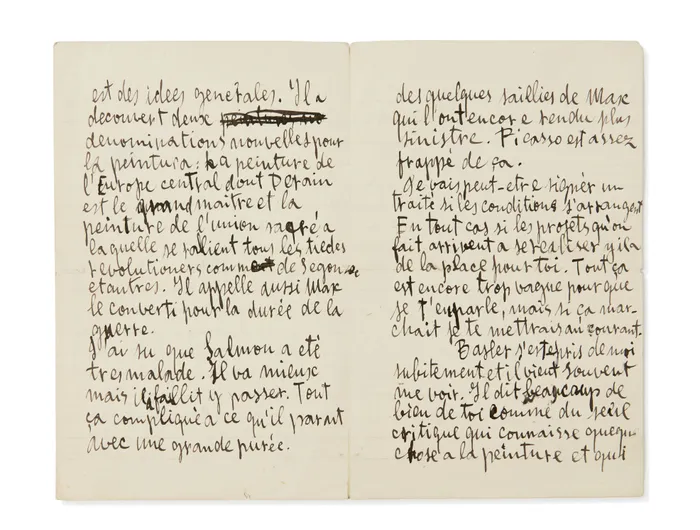 est des idees generales. Il a
decouvert deux
denominations nouvelles pour
la peinture: La peinture de
l'Europe central dont Derain
est le grand maitre et la
peinture de l'union sacré a
laquelle se ralient tous les tiedes
revolutioners comme de Segonzac
et autres. Il appelle aussi Max
le converti pour la durée de la
guerre.
J'ai su que Salmon a eté
tres malade. Il va mieux
mais il fallit y passer. Tout
ça compliqué a ce qu'il parait
avec une grande purée.
des quelques saillies de Max
qui l'ont encore rendu plus
sinistre. Picasso est assez
frappé de ça.
Je vais peut-etre signer un
traité si les conditions s'arrangent
En tout cas si les projets qu'on
fait arrivent a se realiser y ila
de la place pour toi. Tout ça
est encore trop vague pour que
je t'en parle, mais si ça mar-
chait je te mettrais au courant.
Basler s'est epris de moi
subitement et il vient souvent
me voir. Il dit beaucoup de
bien de toi comme du seul
critique qui connaisse quelque
chose a la peinture et qui